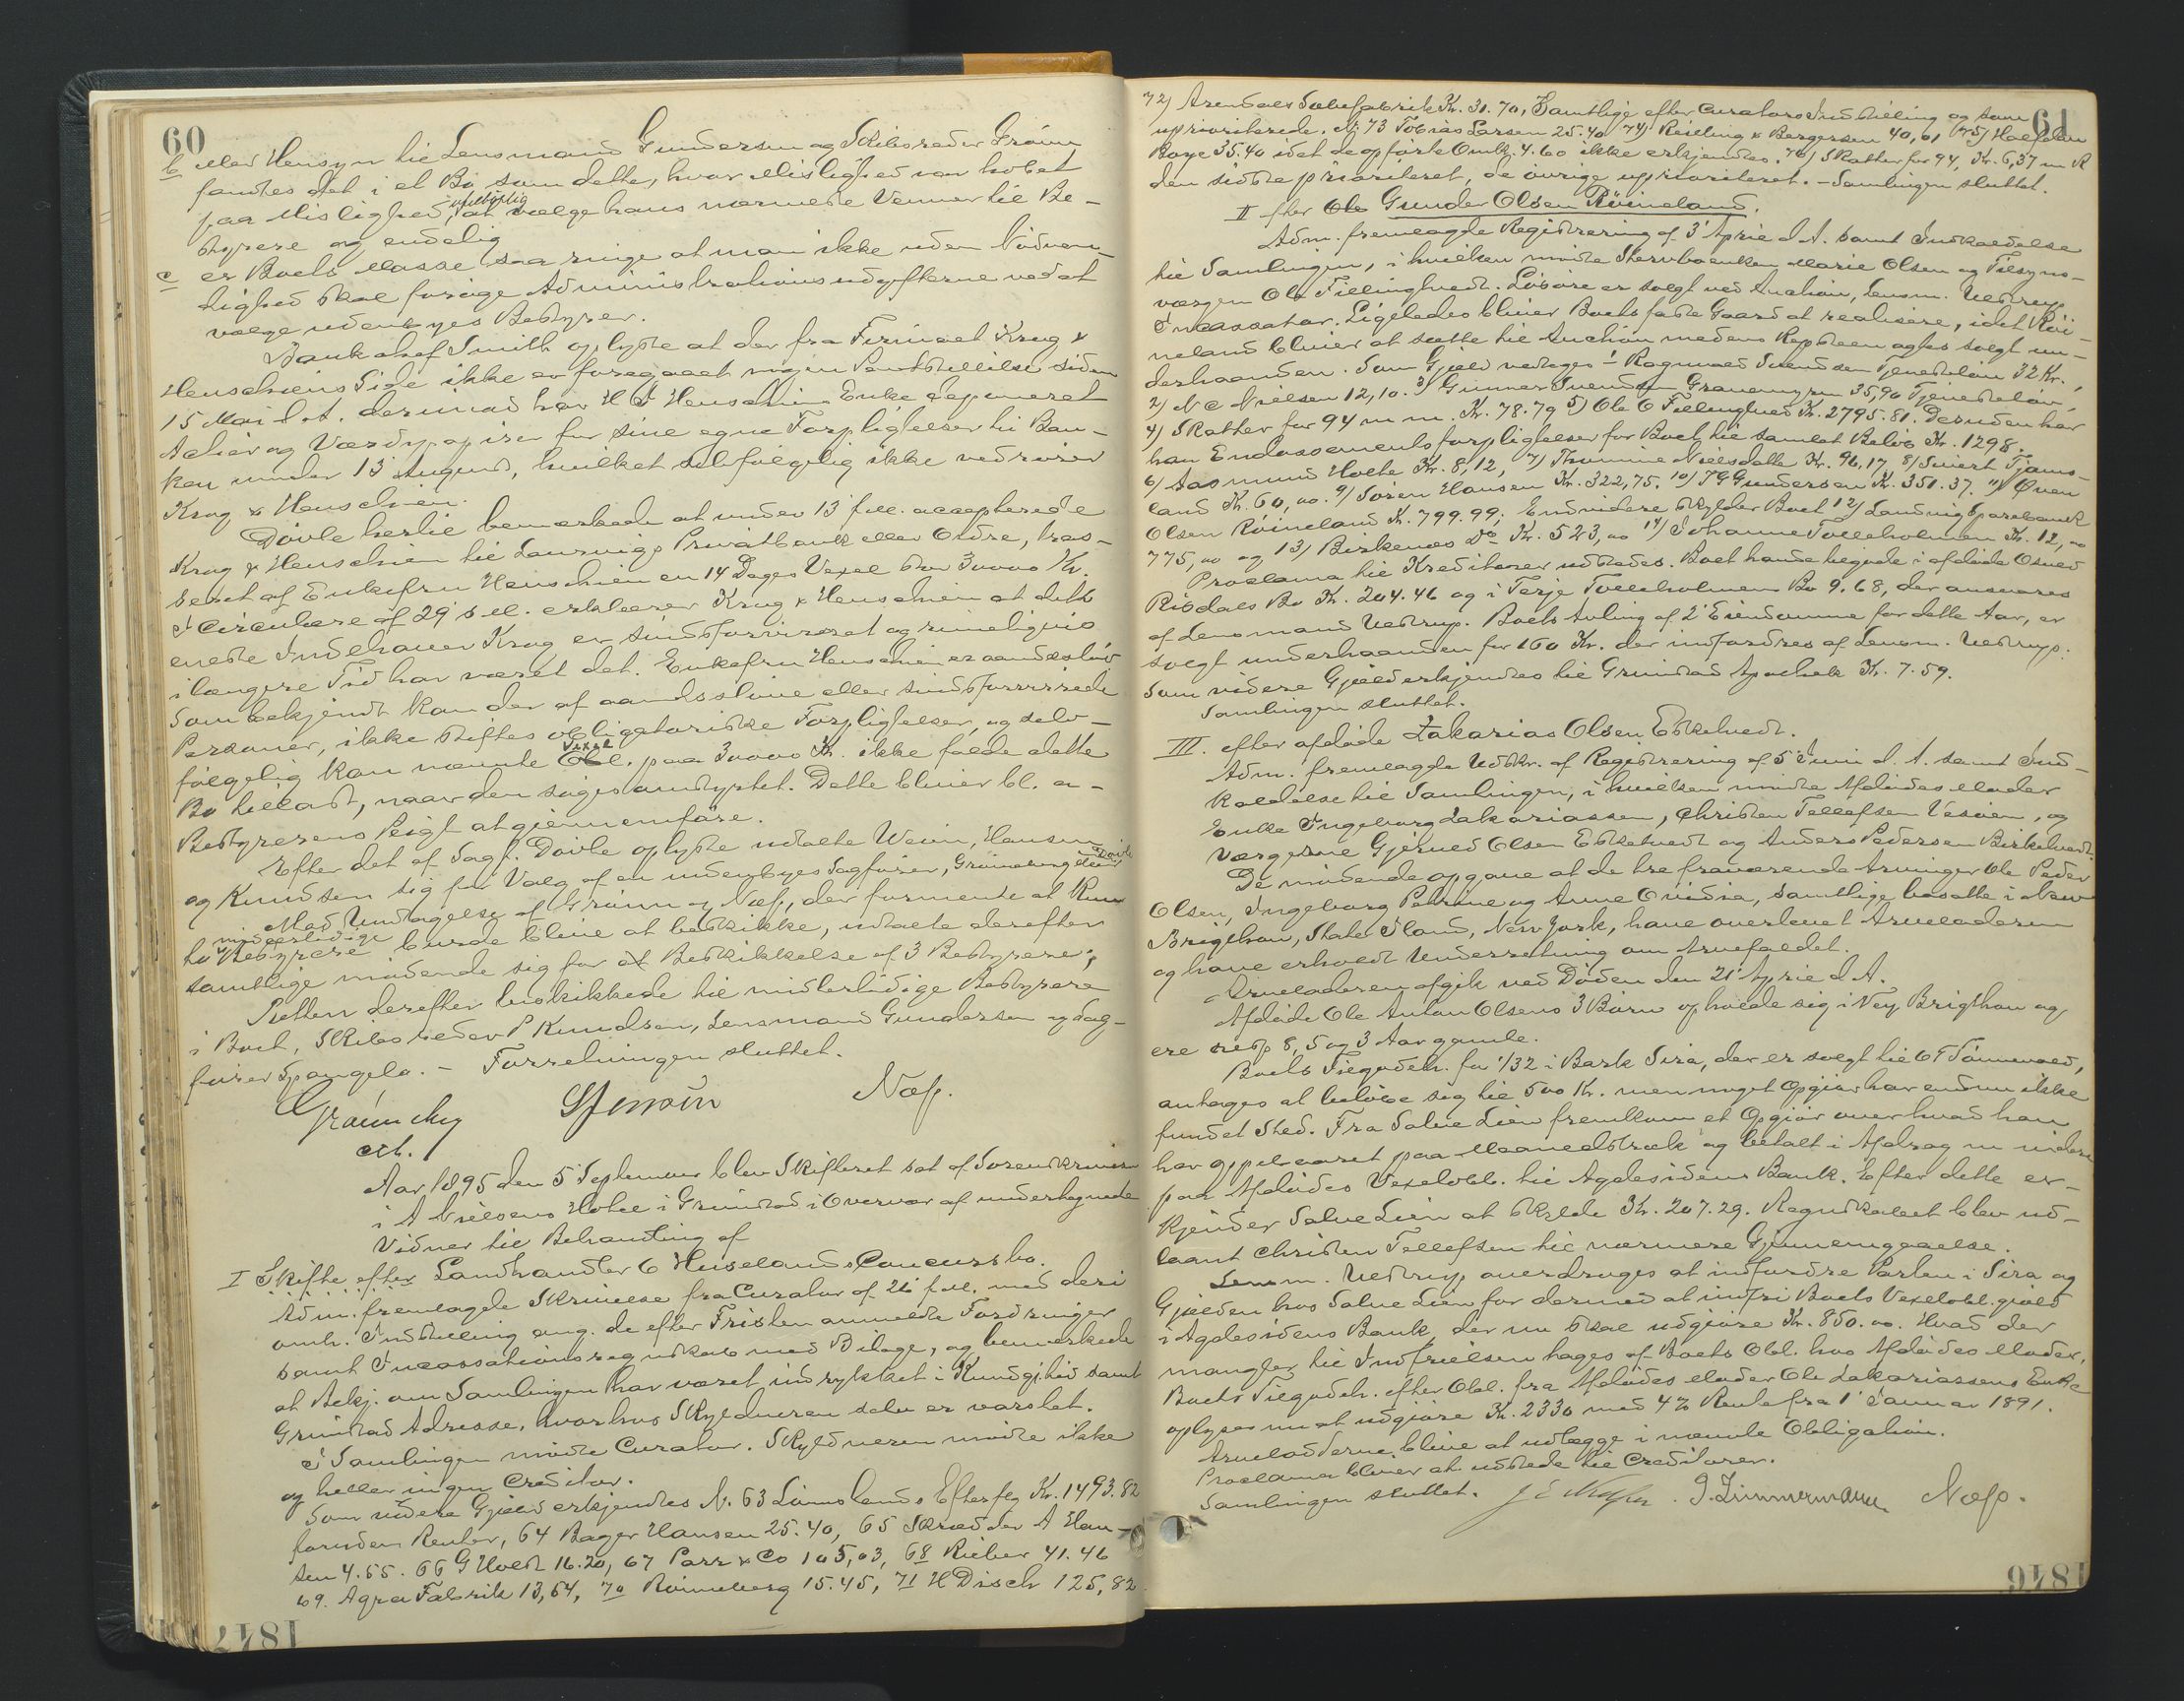 60
b. Med Hensyn til Lensmand Gundersen og Skibsreder Grøum
fandtes det i et Bo, som dette, hvor Mislighed var hobet
paa Mislighed, uheldig at vælge hans nærmeste Venner til Be-
styrere og endelig
c er Boets Masse saa ringe at man ikke uden Nødven-
dighed skal forøge Administrationsudgifterne ved at
vælge udenbyes Bestyrer.
Bankchef Smith oplyste at der fra Firmaet Krag &
Henschiens Side ikke er foregaaet nogen Pantstillelse siden
15 Mai d. A. derimod har H J Henschiens Enke deponeret
Actier og Værdipapirer for sine egne Forpligtelser til Ban-
ken under 13 August, hvilket selvfølgelig ikke vedrører
Krag & Henschien.
Døvle hertil bemærkede at under 13 f.M. accepterede
Krag & Henschien til Laurvigs Privatbank eller Ordre, tras-
seret af Enkefru Henschien en 14 Dages Vexel stor 30000 Kr.
I Circulære af 29 s.M. erklærer Krag & Henschien at dets
eneste Indehaver Krag er sindsforvirret og rimeligvis
i længere Tid har været det. Enkefru Henschien er aandssløv
Som bekjendt kan der af aandssløve eller sindsforvirrede
Personer, ikke stiftes obligatoriske Forpligtelser, og selv-
følgelig kan nævnte Vexel Obl. paa 30000 Kr. ikke falde dette
Bo tillast, naar den søges omstyrtet. Dette bliver bl. a.
Bestyrerens Pligt at gjennemføre.
Efter det af Sagf. Døvle oplyste udtalte Weun, Hansen
og Knudsen sig for Valg af en udenbyes Sagfører,
Med Undtagelse af Grøum og Næss, der formente at kun
to midlertidige Bestyrere burde blive at beskikke, udtalte derefter
samtlige mødende sig for Beskikkelse af 3 Bestyrere;
Retten derefter beskikkede til midlertidige Bestyrere
i Boet, Skibsreder P Knudsen, Lensmand Gundersen og Sag-
fører Spangelo. - Forretningen sluttet.
Næss.
Aar 1895 den 5 September blev Skifteret sat af Sorenskriveren
i A Nielsens Hotel i Grimstad i Overvær af undertegnede
Vidner til Behandling af
I Skifte efter Landhandler O Huselands Concursbo.
Adm. fremlagde Skrivelse fra Curator af 26 f.M. med deri
omh. Indstilling ang. de efter Fristen anmeldte Fordringer
samt Incassationsregnskab med Bilage, og bemærkede
at Bekj. om Samlingen har været indrykket i Kundgj.tid samt
Grimstad Adresse, hvorhos Skyldneren selv er varslet.
I Samlingen mødte Curator. Skyldneren mødte ikke
og heller ingen Creditor.
Som videre Gjæld erkjendtes N. 63 Lømslands Efterflg Kr. 1493.82
foruden Renter, 64 Bager Hansen 25.40, 65 Skrædder A Han-
sen 4.55. 66 G Holst 16.20, 67 Parr & Co 105,03, 68 Rieber 41.46
69. Agra Fabrik 13,64, 70 Rønneberg 15.45, 71 H Disch 125,82
61
72) Arendals Tobaksfabrik Kr. 31.70, Samtlige efter Curators Indstilling og som
uprioriterede. N. 73 Tobias Larsen 25.40 74) Reilling & Bergersen 40,01 75) Halfdan
Boye 35.40 idet de opførte Omk. 4.60 ikke erkjendtes. 76) Skatter for 94, Kr. 6,37 m R
den sidste prioriteret, de øvrige uprioriteret. - Samlingen sluttet.
II efter Gunder Olsen Røineland.
Adm. fremlagde Registrering af 3 April d A. samt Indkaldelse
til Samlingen, i hvilken mødte Stervboenken Marie Olsen og Tilsyns-
værgen Ole Fillinghvedt. Løsøre er solgt ved Auction, Lensm. Uedtrup
Incassator. Ligeledes bliver Boets faste Gaard at realisere, idet Røi-
neland bliver at sætte til Auction medens Repsteen agtes solgt un-
derhaanden. Som Gjæld vedtoges 1 Ragnvald Svendsen Tjenesteløn 32 Kr.,
2) N C Nielsen 12,10. 3) Gunnar Svendsen Grauemyren 35,90 Tjenesteløn,
4) Skatter for 94 m m. Kr. 78.79 5) Ole O Fillinghved Kr. 2795.81. Desuden har
han Endossementsforpligtelser for Boet til samlet Beløb Kr. 1298.
6) Aasmund Holte Kr. 8,12, 7) Thomine Nielsdatte Kr. 96,17, 8) Sivert Tjams-
land Kr. 60,00. 9) Søren Hansen Kr. 322,75. 10) T G Gundersen Kr. 351.37. 11) Oven
Olsen Røineland Kr. 799.99; Endvidere skylder Boet 12) Landvig Sparebank
775,00 og 13) Birkenes Do Kr. 523,00 14) Johanne Tolleholmen Kr. 12,00
Proclama til Kreditorer udstedes. Boet havde tilgode i afdøde Osuld
Risdals Bo Kr. 204.46 og i Terje Tolleholmens Bo 9.68, der ansvares
af Lensmand Uedtrup. Boets Avling af 2 Eiendomme for dette Aar, er
solgt underhaanden for 160 Kr. der indfordres af Lensm. Uedtrup.
Som videre Gjæld erkjendtes til Grimstad Apothek Kr. 7.59.
Samlingen sluttet.
III. efter afdøde Zakarias Olsen Eskelvedt.
Adm. fremlagde Udskr. af Registrering af 5 Juni d. A. samt Ind-
kaldelse til Samlingen, i hvilken mødte Afdødes Moder
Enke Ingeborg Zakariassen, Christen Tellefsen Vesøen, og
Værgerne Gjerued Olsen Eskelvedt og Anders Pedersen Birkelvedt.
De mødende opgave at de tre fraværende Arvinger Ole Peder
Olsen, Ingeborg Petrine og Anne Ovidia, samtlige bosatte i New
Brigthon, State Iland, New York, have overlevet Arveladeren
og have erholdt Underretning om Arvefaldet.
Arveladeren afgik ved Døden den 21 April d A.
Afdøde Ole Anton Olsens 3 Børn opholde sig i Ney Brigthon og
ere resp 8, 5 og 3 Aar gamle.
Boets Tilgodeh. for 1/32 i Bark Sira, der er solgt til O T Tønnevold,
antages at beløbe sig til 500 Kr. men noget Opgjør har endnu ikke
fundet Sted. Fra Salve Lien fremkom et Opgjør over hvad han
har oppebaaret paa Maanedstræk og betalt i Afdrag m videre
paa Afdødes Vexelobl. til Agdesidens Bank. Efter dette er-
kjender Salve Lien at skylde Kr. 207.29. Regnskabet blev ud-
laant Christen Tellefsen til nærmere Gjennemgaaelse.
Lensm. Uedtrup overdroges at indfordre Parten i Sira og
Gjælden hos Salve Lien for dermed at indfri Boets Vexelobl. gjæld
i Agdesidens Bank, der nu skal udgjøre Kr. 850.00. Hvad der
mangler til Indfrielsen tages af Boets Obl. hos Afdødes Moder.
Boets Tilgodeh. efter Obl. fra Afdødes Moder Ole Zakariassens Enke
oplyses nu at udgjøre Kr. 2330 med 4% Rente fra 1 Januar 1891.
Arvelodderne blive at udlægge i nævnte Obligation.
Proclama bliver at udstede til Creditorer.
Samlingen sluttet. J. Zimmermann Næss.
1846
1847